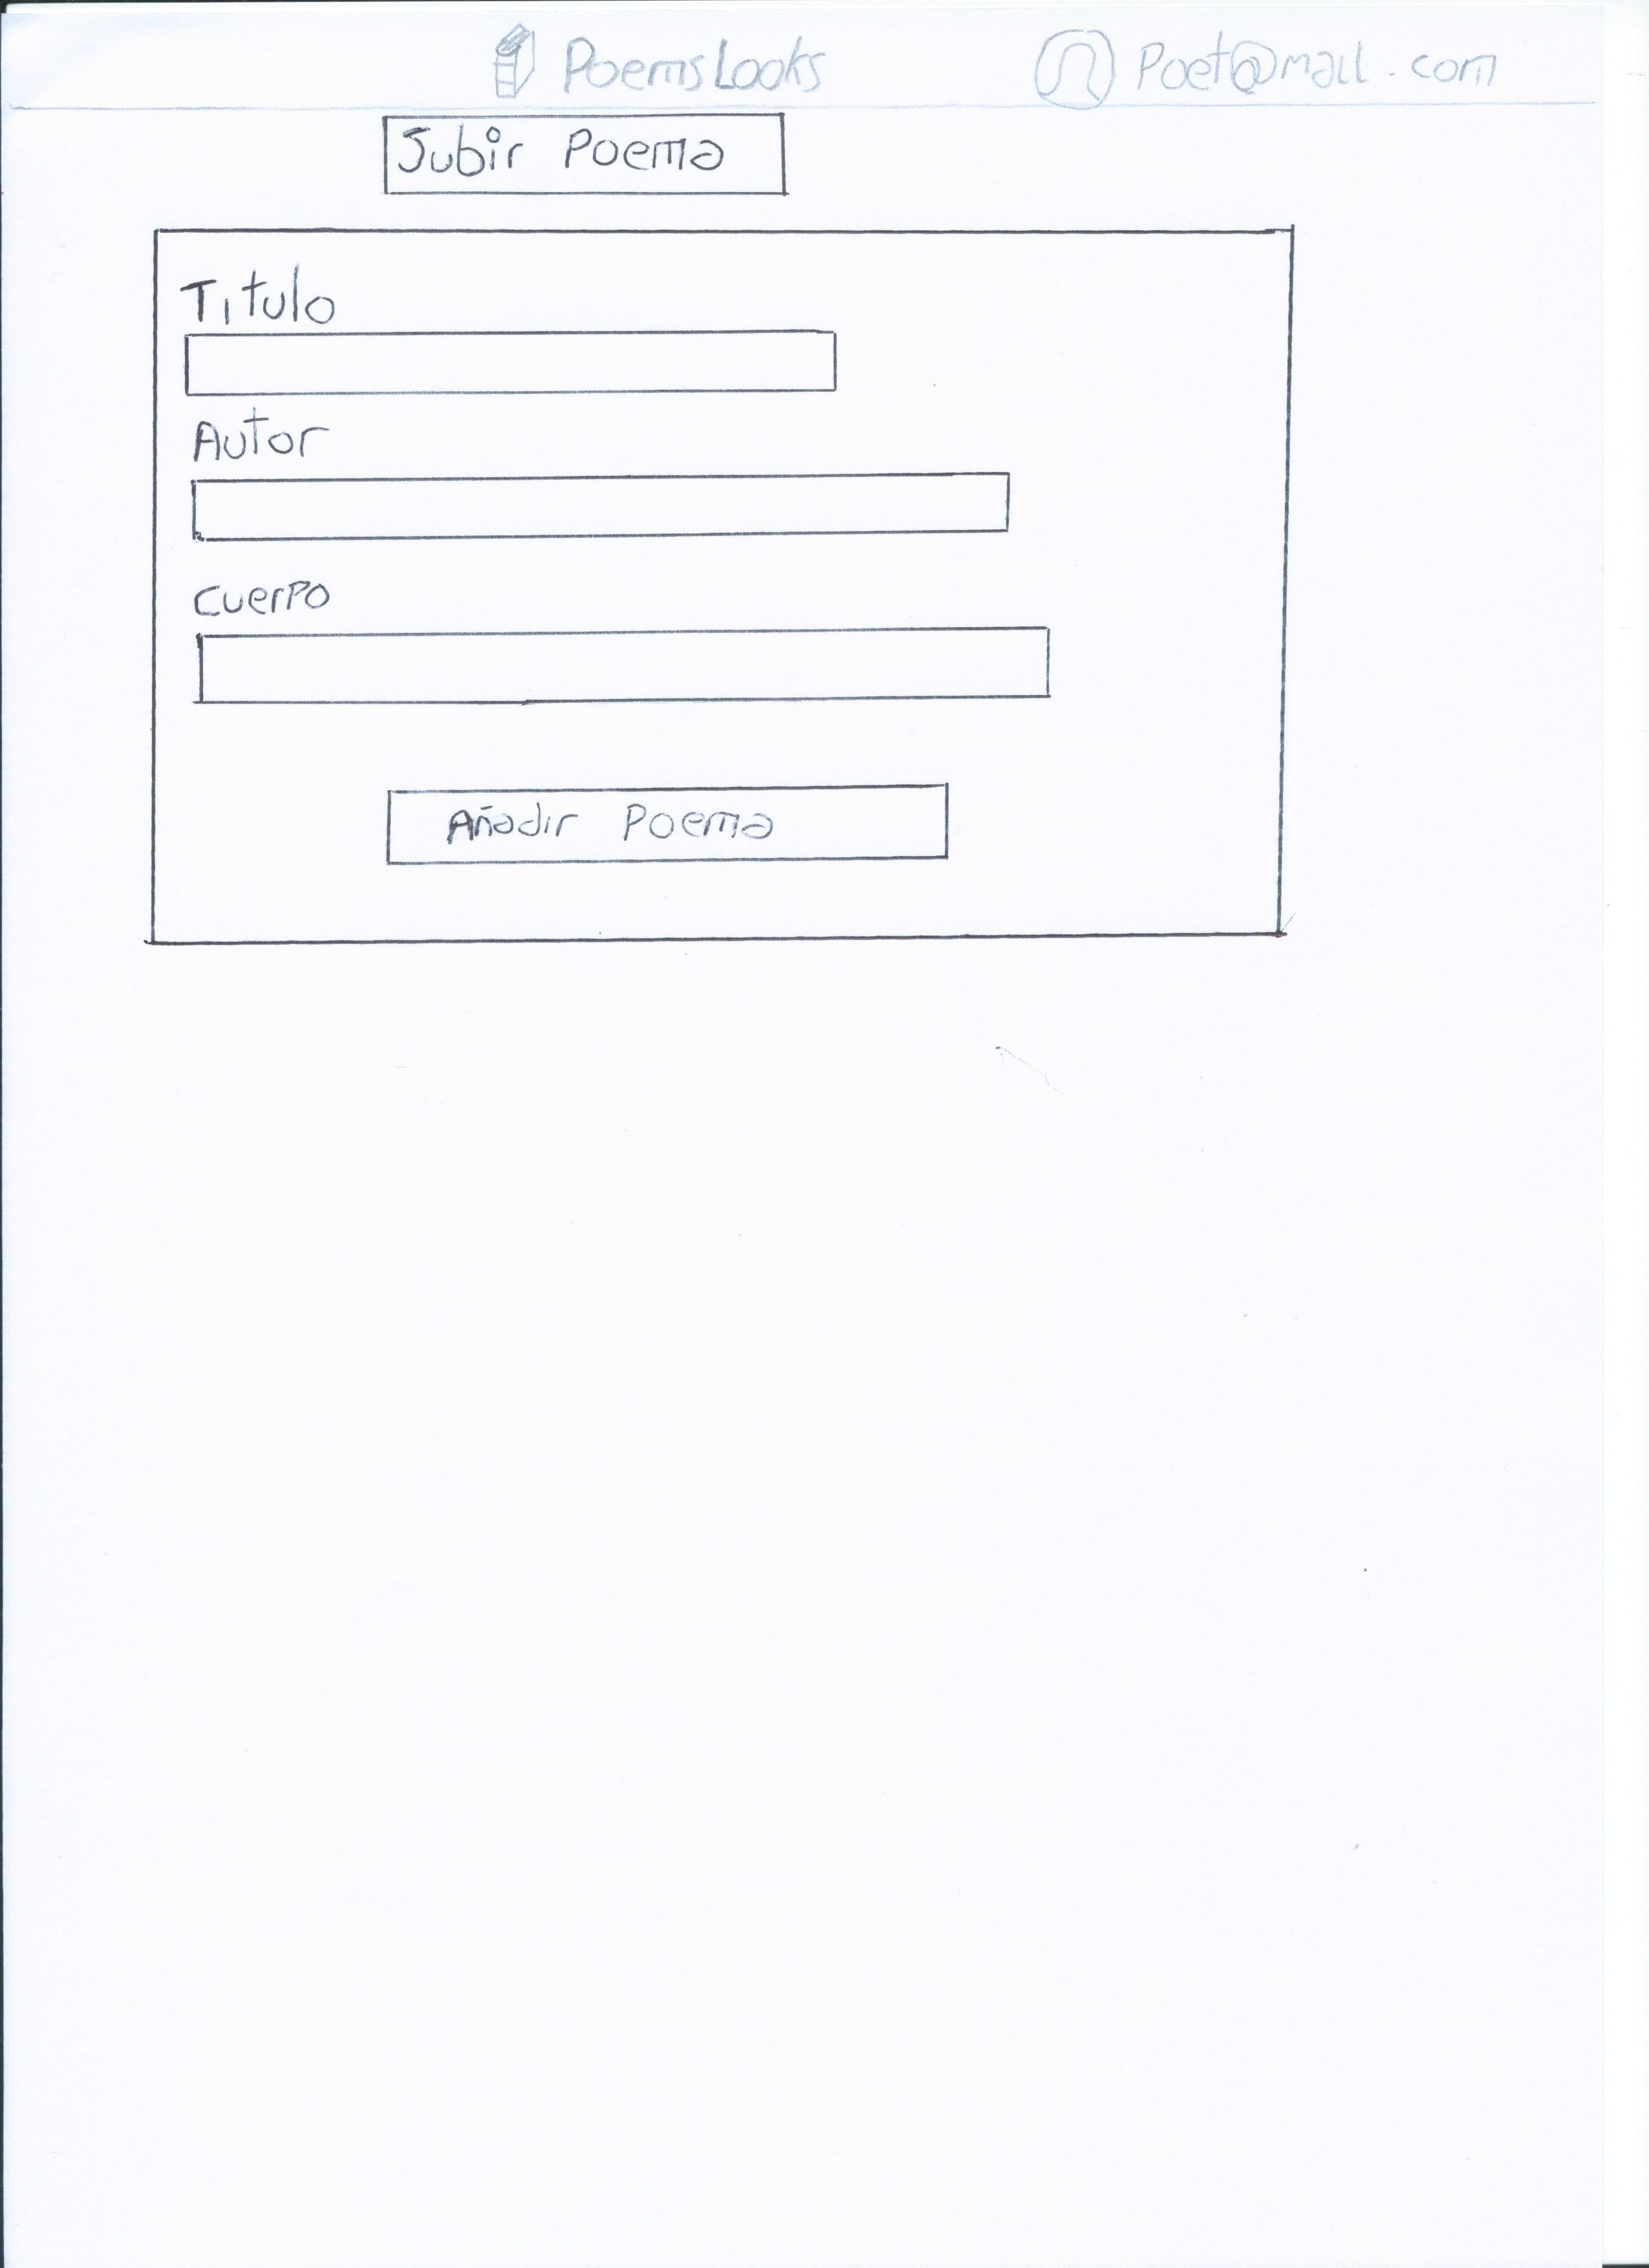 PoemsLooks Poet@mail.com
Subir Poema
Titulo
Autor
Cuerpo
Añadir Poema